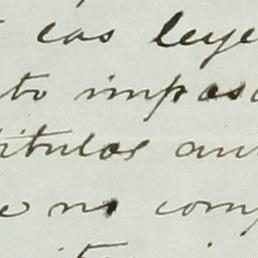 las leye
to impos
titulos an
e no com